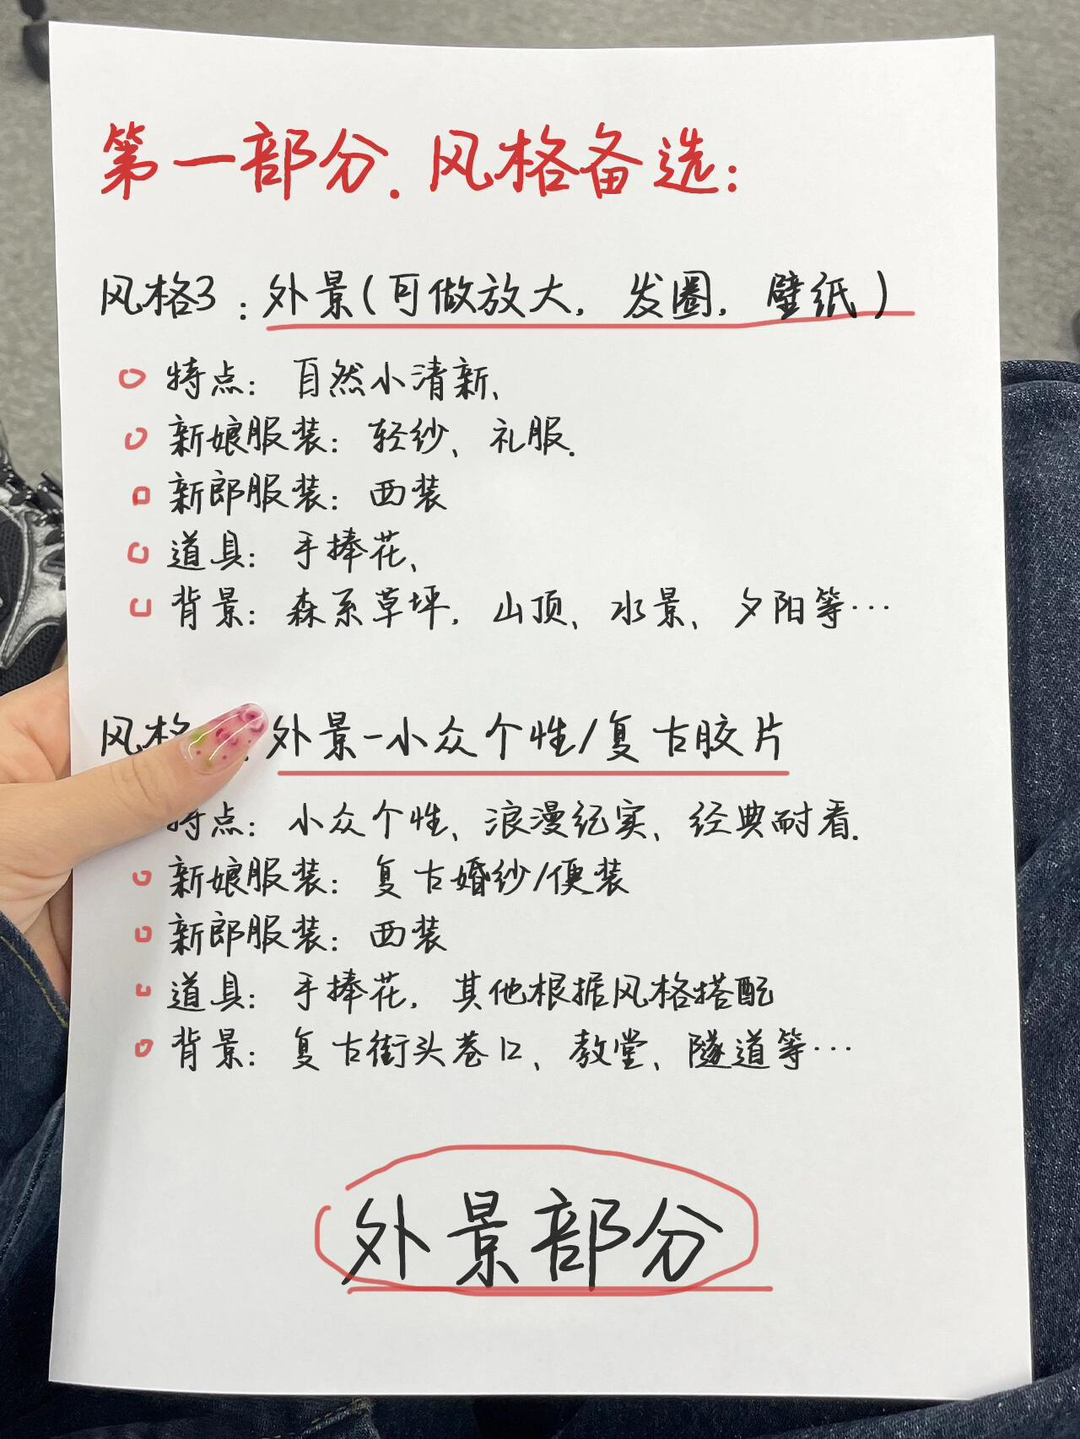 第一部分.风格备选:
风格3:外景(可做放大,发圈,壁纸)
特点:自然小清新、
新娘服装:轻纱、礼服.
新郎服装:西装
道具:手捧花、
背景:森系草坪,山顶、水景、夕阳等…
风格 :外景-小众个性/复古胶片
特点:小众个性、浪漫纪实、经典耐看.
新娘服装:复古婚纱/便装
新郎服装:西装
道具:手捧花,其他根据风格搭配
背景:复古街头巷口、教堂、隧道等…
外景部分